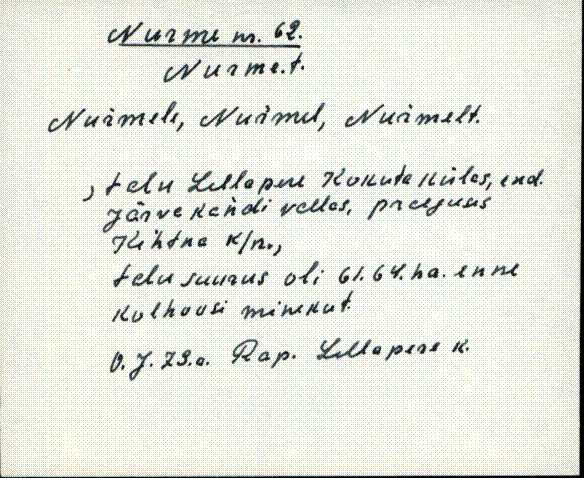 Nurme nr. 62.
Nurme.t.
Nurmele, Nurmel, Nurmelt.
, talu Lellapere Kokuta külas, end.
Järvekandi vallas, praegusus
Kehtna k/n.,
talu suurus oli 61.64. ha. enne
kolhoosi minekut.
O. J. 79.a. Rap. Lellapere k.